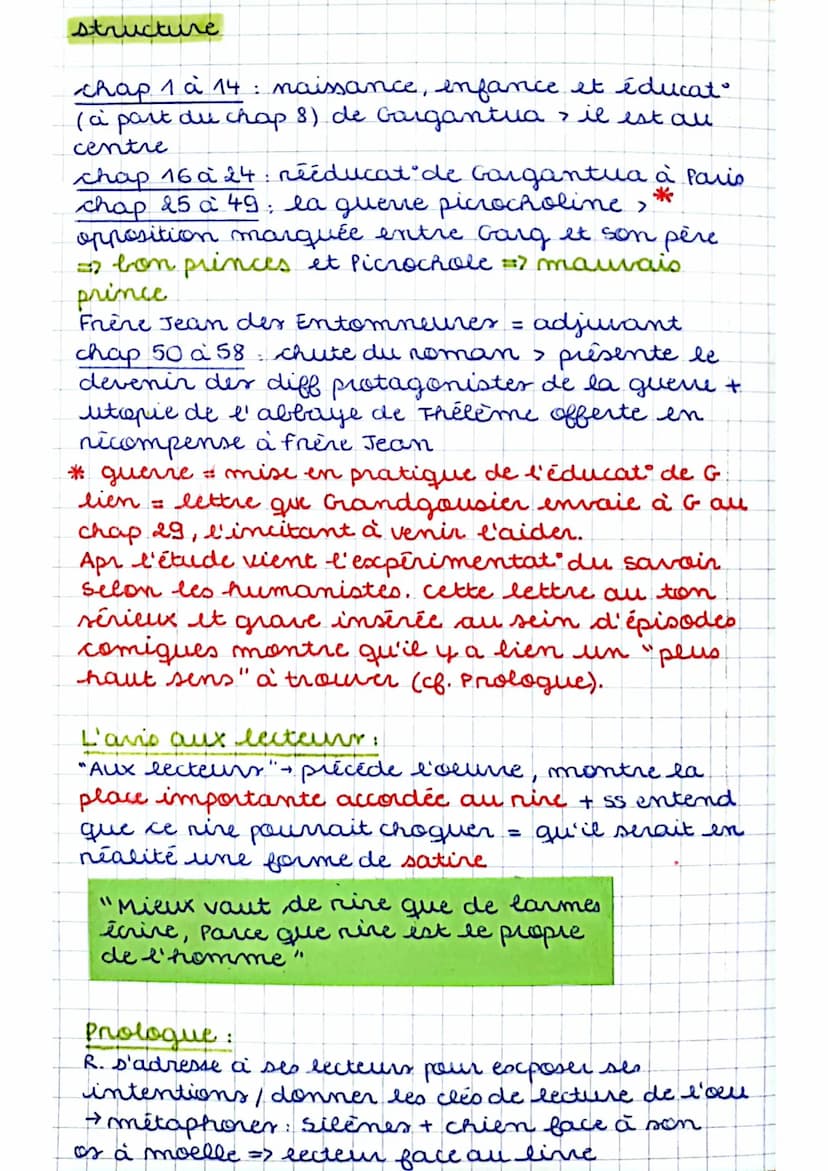 structure
chap 1 à 14 : naissance, enfance et éducat°
(à part du chap 8) de Gargantua > il est au
centre
chap 16 à 24 : rééducat° de Gargantua à Paris
chap 25 à 49 : la guerre picrocholine > *
opposition marquée entre Garg et son père
=> bon princes et Picrochole => mauvais
prince
Frère Jean des Entommeures = adjuvant
chap 50 à 58 : chute du roman > présente le
devenir des diff protagonistes de la guerre +
utopie de l'abbaye de Thélème offerte en
récompense à frère Jean
* guerre = mise en pratique de l'éducat° de G
lien = lettre que Grandgousier envoie à G au
chap 29, l'incitant à venir l'aider.
Apr l'étude vient l'expérimentat° du savoir
selon les humanistes. cette lettre au ton
sérieux et grave insérée au sein d'épisodes
comiques montre qu'il y a bien un "plus
haut sens" à trouver (cf. Prologue).
L'avis aux lecteurs :
"Aux lecteurs" → précède l'oeuvre, montre la
place importante accordée au rire + ss entend
que ce rire pourrait choquer = qu'il serait en
réalité une forme de satire
"Mieux vaut de rire que de larmes
écrire, Parce que rire est le propre
de l'homme"
Prologue :
R. s'adresse à ses lecteurs pour exposer ses
intentions / donner les clés de lecture de l'oeu
→ métaphores : Silènes + chien face à son
os à moelle => lecteur face au livre